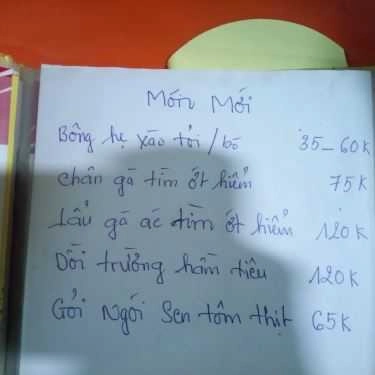 Món Mới
Bông hẹ xào tỏi/bò 35-60K
chân gà tìm ớt hiểm 75K
Lẩu gà ác tìm ớt hiểm 120K
Dồi trường hầm tiêu 120K
Gỏi Ngói Sen tôm thịt 65K